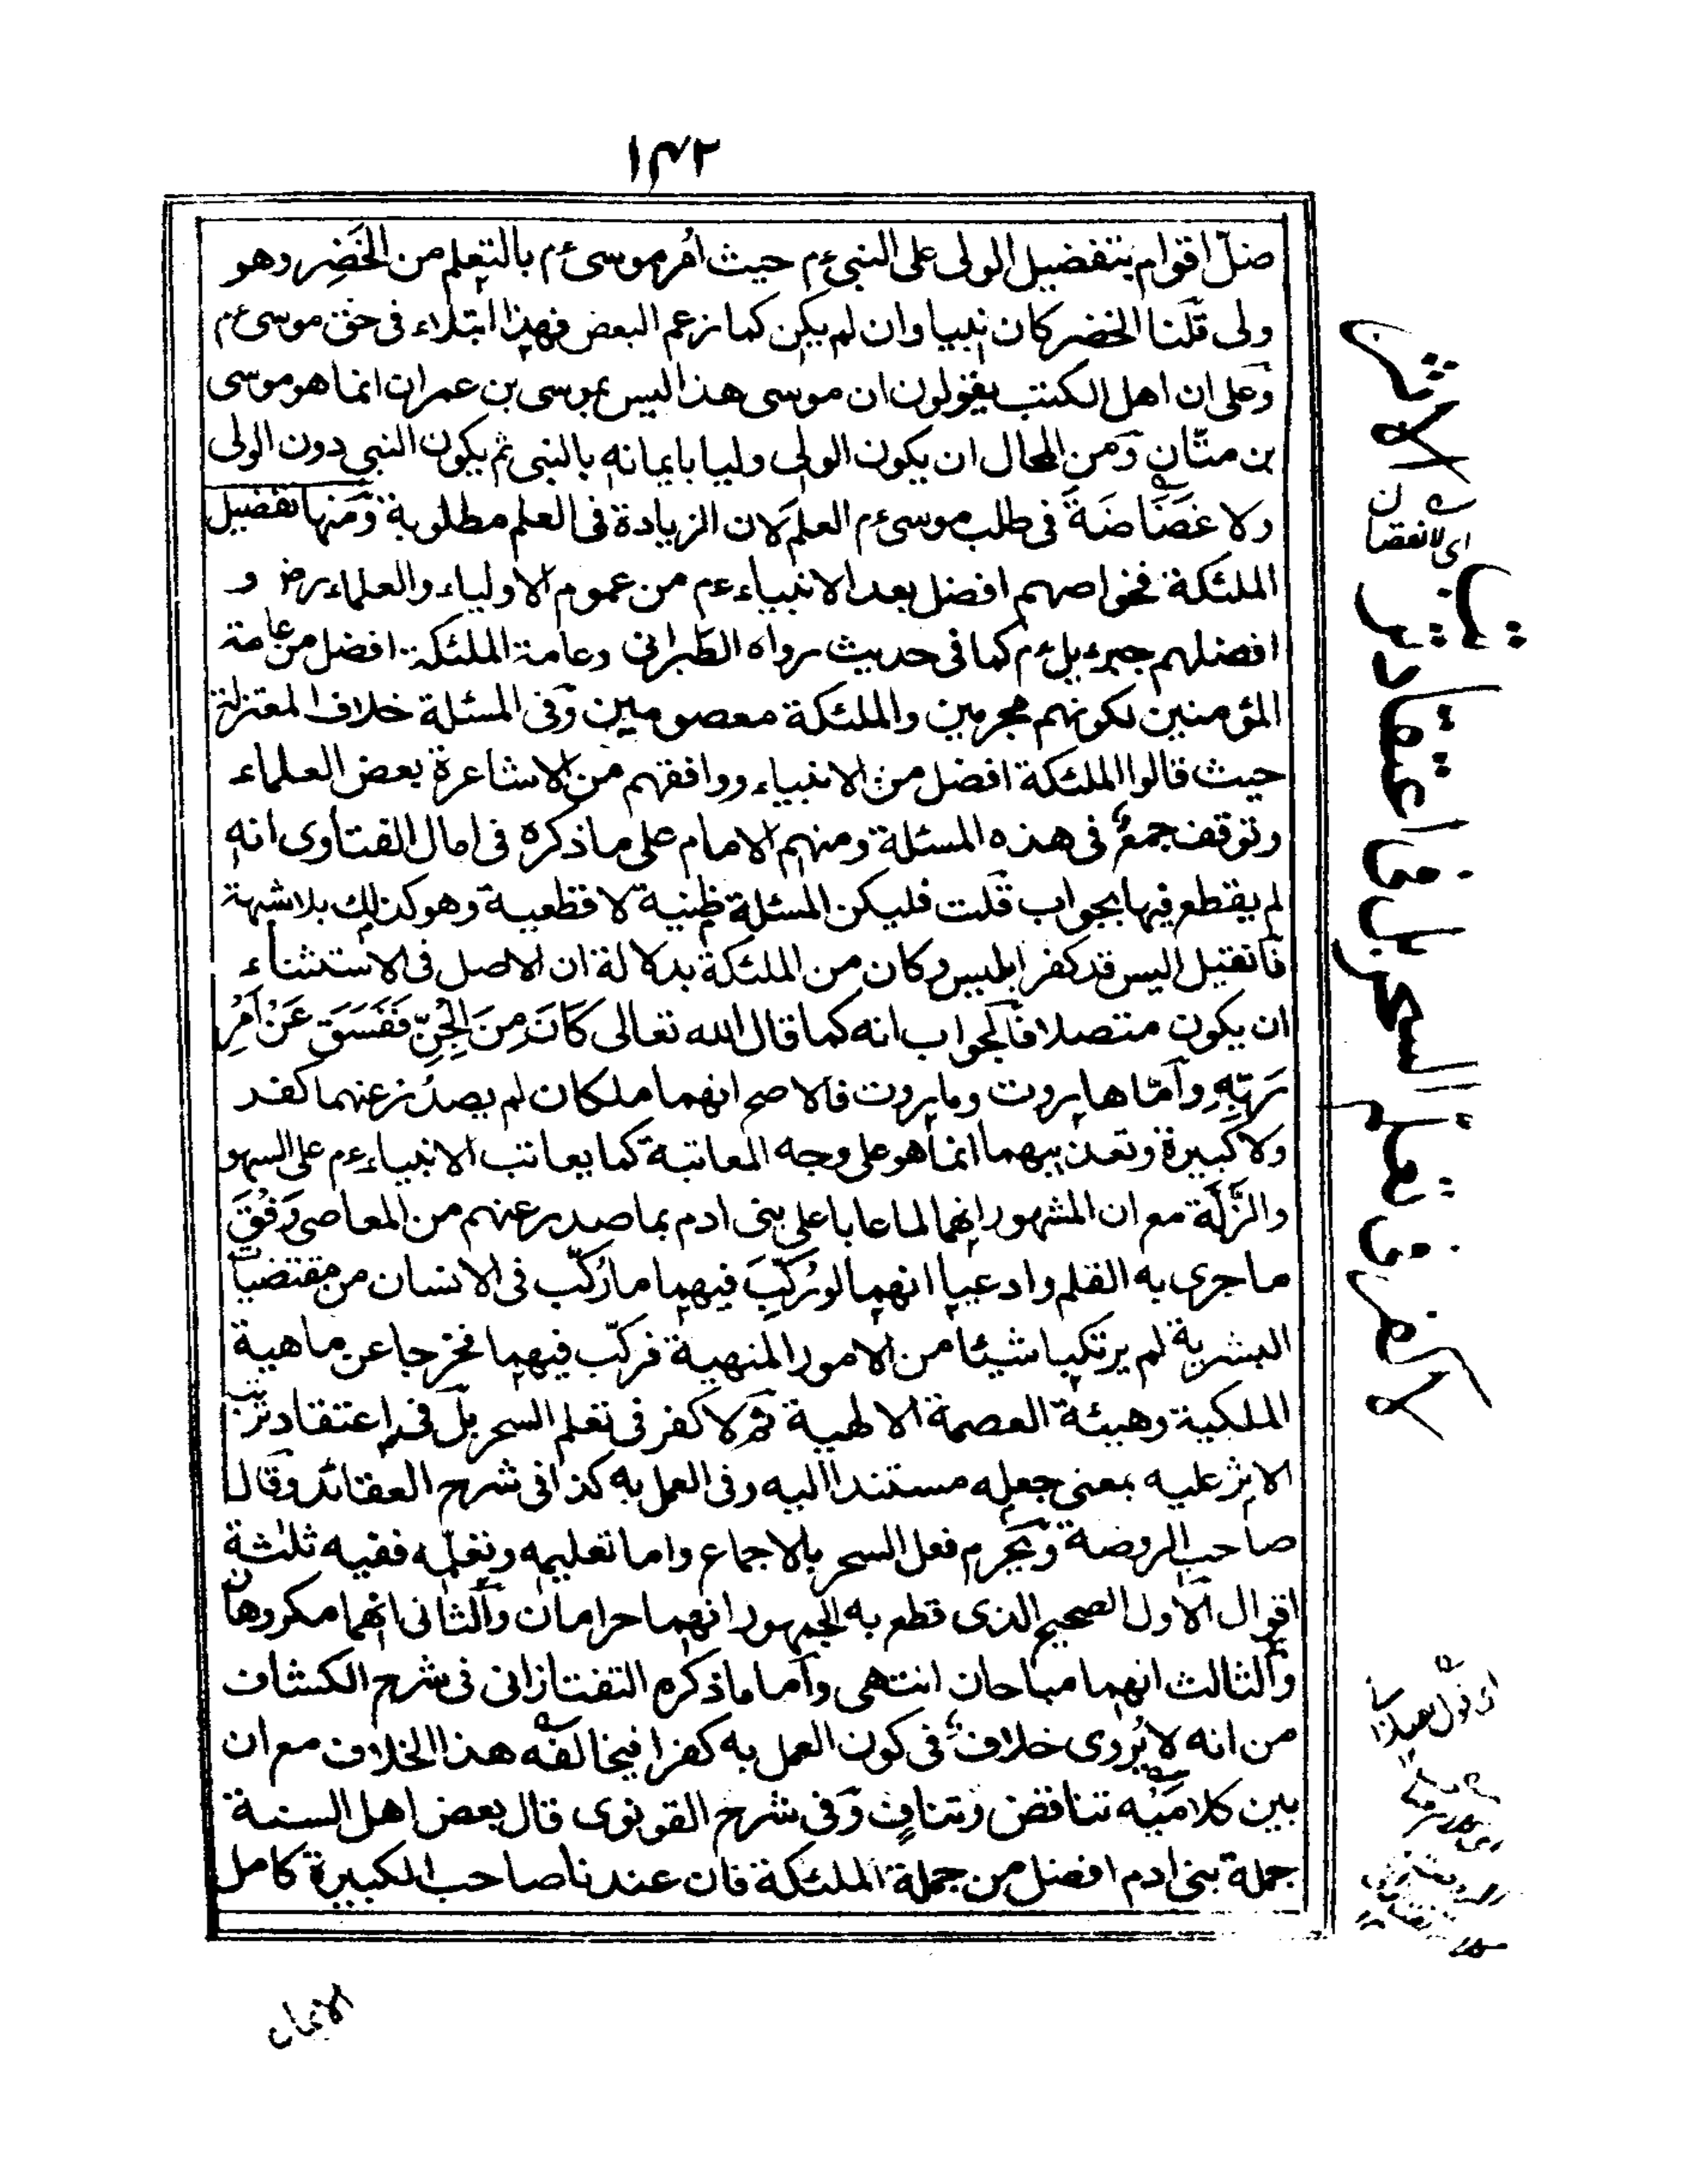 ١٤٢
ضلّ اقوام بتفضيل الولى على النبى ءم حيث اُمر موسى ءم بالتعلم من الخَضِر وهو
ولى قلنا الخضر كان نبيا وان لم يكن كما زعم البعض فهذا ابتلاء فى حق موسى ءم
وعلى ان اهل الكتب يقولون ان موسى هذا ليس بموسى بن عمران انما هو موسى
بن متّان ومن المحال ان يكون الولى وليا بايمانه بالنبى ثم يكون النبى دون الولى
ولا غضَاضَةَ فى طلب موسى ءم العلم لان الزيادة فى العلم مطلوبة ومنها تفضيل
الملئكة فخواصهم افضل بعد الانبياء ءم من عموم الاولياء والعلماء رض و
افضلهم جبرءيل ءم كما فى حديث رواه الطبرانى وعامة الملئكة افضل من عامة
المؤمنين لكونهم مجرمين والملئكة معصومين وفى المسئلة خلاف المعتزلة
حيث قالوا الملئكة افضل من الانبياء ووافقهم من الاشاعرة بعض العلماء
وتوقف جمعٌ فى هذه المسئلة ومنهم الامام على ما ذكره فى امال الفتاوى انه
لم يقطع فيها بجواب قلت فليكن المسئلة ظنية لا قطعية وهو كذلك بلا شبهة
فان قيل اليس قد كفر ابليس وكان من الملئكة بدلالة ان الاصل فى الاستثناء
ان يكون متصلا فالجواب انه كما قال الله تعالى كَانَ مِنَ الْجِنِّ فَفَسَقَ عَنْ اَمْرِ
رَبِّهِ وامّا هاروت وماروت فالاصح انهما ملكان لم يصدُر عنهما كفر
ولا كبيرة وتعذيبهما انما هو على وجه المعاتبة كما يعاتب الانبياء ءم على السهو
والزَّلَّة مع ان المشهور انهما لما عابا على بنى ادم بما صدر عنهم من المعاصى وَفْقَ
ما جرى به القلم وادعيا انهما لو رُكِّبَ فيهما ما رُكّب فى الانسان من مقتضيات
البشرية لم يرتكبا شيئا من الامور المنهية فركّب فيهما فخرجا عن ماهية
الملكية وهيئة العصمة الالهية ثم لا كفر فى تعلم السحر بل فى اعتقاد ترتب
الاثر عليه بمعنى جعله مستندا اليه وفى العمل به كذا فى شرح العقائد وقال
صاحب الروضة ويحرم فعل السحر بالاجماع واما تعليمه وتعلمه ففيه ثلثة
اقوال الاول الصحيح الذى قطع به الجمهور انهما حرامان والثانى انهما مكروهان
والثالث انهما مباحان انتهى واما ما ذكره التفتازانى فى شرح الكشاف
من انه لا يُروى خلافٌ فى كون العمل به كفرا فيخالفه هذا الخلاف مع ان
بين كلاميْه تناقض وتنافٍ وفى شرح القونوى قال بعض اهل السنة
جملة بنى ادم افضل من جملة الملئكة فان عندنا صاحب الكبيرة كامل
اى لا نقصان
لا كفر فى تعلم السحر بل فى اعتقاد ترتب الاثر
الايمان